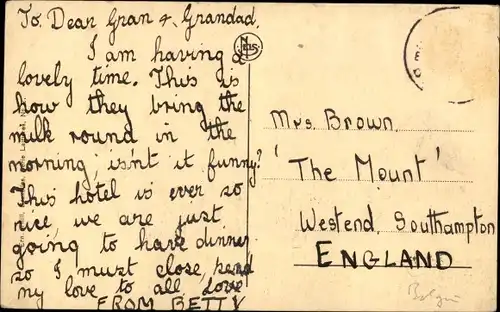 To. Dear Gran & Grandad.
I am having a
lovely time. This is
how they bring the
milk round in the
morning; isn't it funny?
This hotel is ever so
nice, we are just
going to have dinner
so I must close, send
my love to all. Love
FROM BETTY
Nels
Mrs Brown.
'The Mount'
Westend, Southampton
ENGLAND